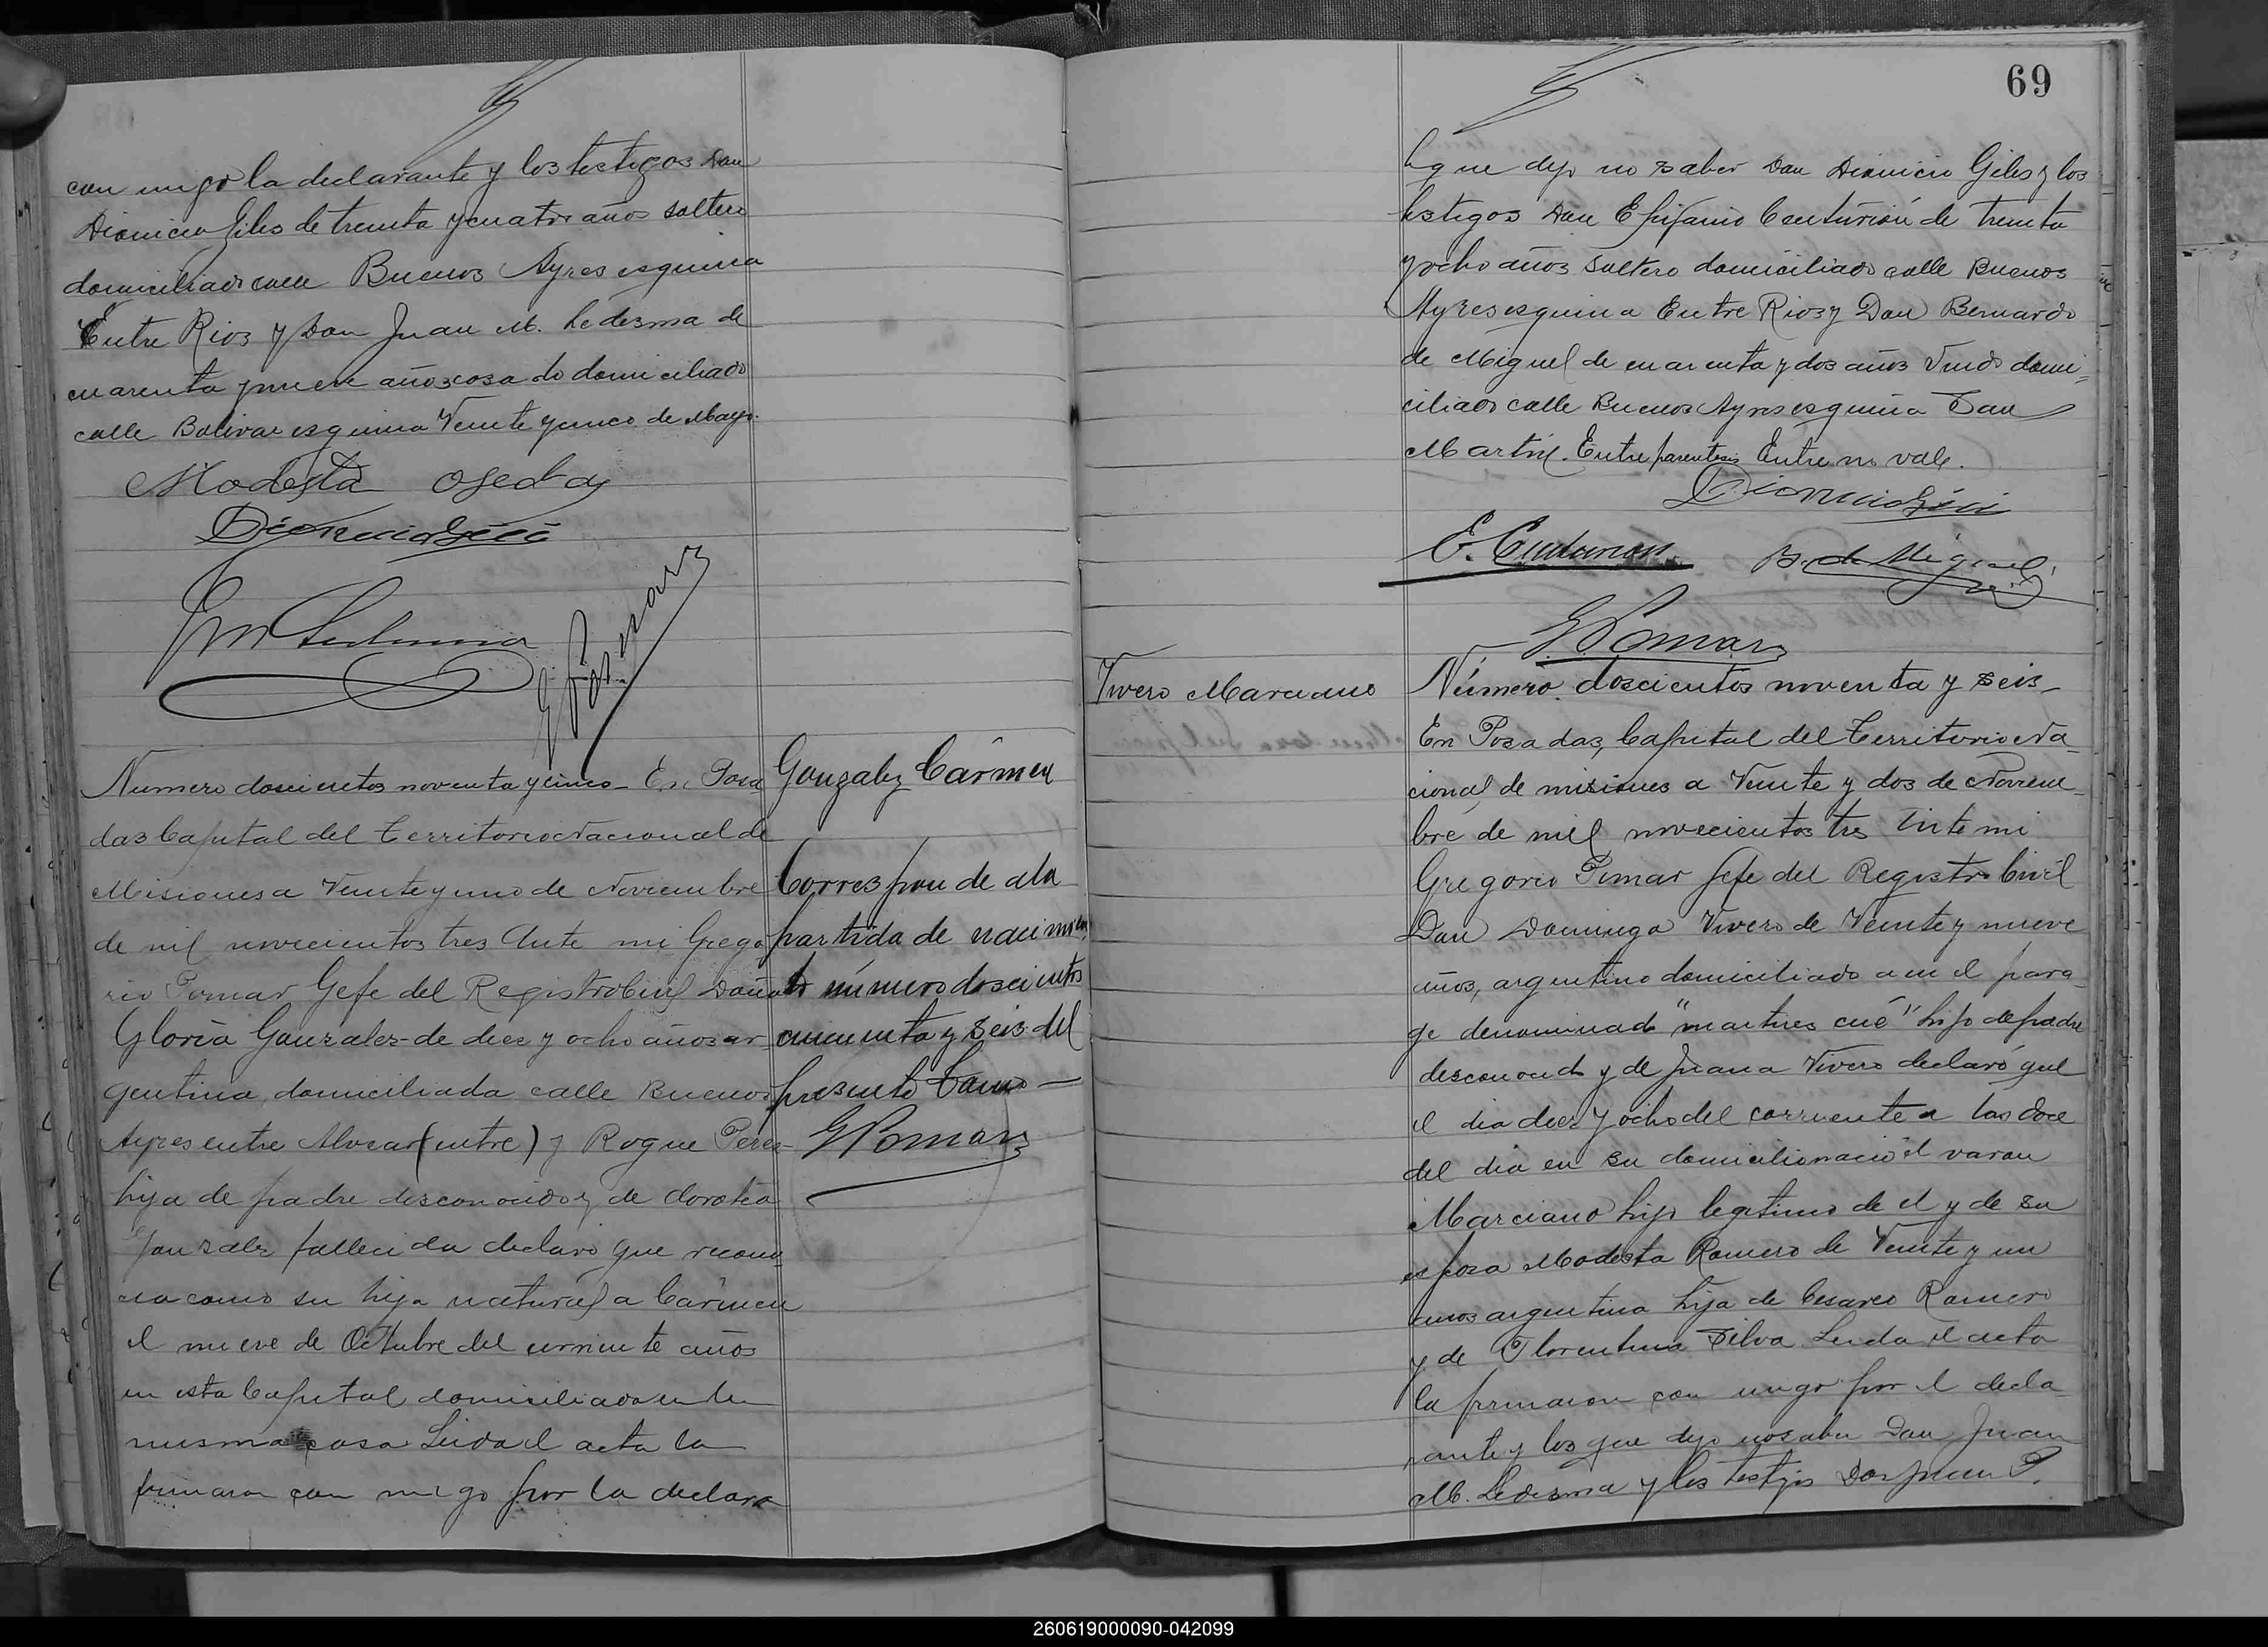 con migo la declarante y los testigos Don
Dionicio Giles de treinta y cuatro años soltero
domiciliado calle Buenos Ayres esquina
Entre Rios y Don Juan M. Ledesma de
cuarenta y nueve años casado domiciliado
calle Bolivar esquina Veinte y cinco de Mayo.
Modesta Ojeda
Dionicio Giles
J M Ledesma
G. Pomar
Numero doscientos noventa y cinco - En Posa
das Capital del Territorio Nacional de
Misiones a Veinte y uno de Noviembre
de mil novecientos tres Ante mi Grego
rio Pomar Gefe del Registro Civil Doña
Gloria Gonzalez de diez y ocho años ar
gentina domiciliada calle Buenos
Ayres entre Alvear (entre) y Roque Perez
hija de padre desconocido y de Dorotea
Gonzalez fallecida declaró que recono
cia como su hija natural a Cármen
el nueve de Octubre del corriente años
en esta Capital domiciliada en la
misma casa Leida el acta la
firmaron con migo por la declara
Gonzalez Cármen
Corresponde a la
partida de nacimien
to número doscientos
cincuenta y seis del
presente tomo -
G Pomar
69
te que dejo no saber Don Dionicio Giles y los
testigos Don Epifanio Centurión de treinta
y ocho años soltero domiciliado calle Buenos
Ayres esquina Entre Rios y Don Bernardo
de Miguel de cuarenta y dos años Viudo domi=
ciliado calle Buenos Ayres esquina San
Martin. Entre parentesis Entre no vale.
Dionicio Giles
E. Centurion B. de Miguel
G. Pomar
Vivero Marciano
Número doscientos noventa y seis -
En Posadas, Capital del Territorio Na
cional de misiones a Veinte y dos de Noviem
bre de mil novecientos tres Ante mi
Gregorio Pomar Jefe del Registro Civil
Don Domingo Vivero de Veinte y nueve
años, argentino domiciliado a en el para
ge denominado "martires cué" hijo de padre
desconocido y de Juana Vivero declaró que
el dia diez y ocho del corriente a las doce
del dia en su domicilio nació el varon
Marciano hijo legitimo de el y de su
esposa Modesta Romero de Veinte y un
anos argentina hija de Cesareo Romero
y de Florentina Silva Leida el acta
la firmaron con migo por el decla
rante y los que dejo no saber Don Juan
M. Ledesma y los testigos Don Juan P.
260619000090-042099